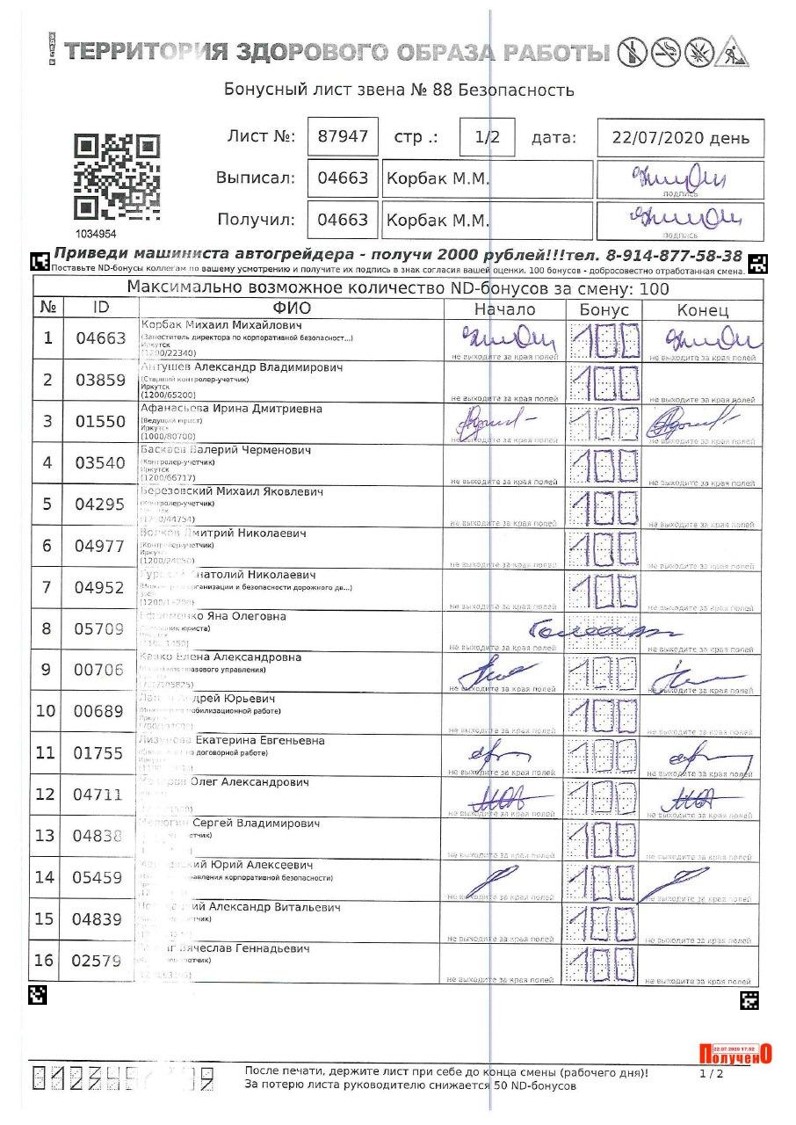 ТЕРРИТОРИЯ ЗДОРОВОГО ОБРАЗА РАБОТЫ
Бонусный лист звена № 88 Безопасность
Лист №: 87947 стр .: 1/2 дата: 22/07/2020 день
Выписал: 04663 Корбак М.М.
подпись
Получил: 04663 Корбак М.М.
подпись
1034954
Приведи машиниста автогрейдера - получи 2000 рублей!!!тел. 8-914-877-58-38
Поставьте ND-бонусы коллегам по вашему усмотрению и получите их подпись в знак согласия вашей оценки. 100 бонусов - добросовестно отработанная смена.
Максимально возможное количество ND-бонусов за смену: 100
№ ID ФИО Начало Бонус Конец
1 04663 Корбак Михаил Михайлович 100
(Заместитель директора по корпоративной безопасност...)
Иркутск
(1200/22340)
не выходите за края полей не выходите за края полей
2 03859 Антушев Александр Владимирович 100
(Старший контролер-учетчик)
Иркутск
(1200/65200)
не выходите за края полей не выходите за края полей
3 01550 Афанасьева Ирина Дмитриевна 100
(Ведущий юрист)
Иркутск
(1000/80700)
не выходите за края полей не выходите за края полей
4 03540 Валерий Черменович 100
(Контролер-учетчик)
Иркутск
(1200/66717)
не выходите за края полей не выходите за края полей
5 04295 Березовский Михаил Яковлевич 100
не выходите за края полей не выходите за края полей
6 04977 Дмитрий Николаевич 100
не выходите за края полей не выходите за края полей
7 04952 Анатолий Николаевич 100
организации и безопасности дорожного дв...)
не выходите за края полей не выходите за края полей
8 05709 Яна Олеговна
юриста)
не выходите за края полей не выходите за края полей
9 00706 Елена Александровна 100
правового управления)
не выходите за края полей не выходите за края полей
10 00689 Андрей Юрьевич 100
мобилизационной работе)
не выходите за края полей не выходите за края полей
11 01755 Екатерина Евгеньевна 100
по договорной работе)
не выходите за края полей не выходите за края полей
12 04711 Олег Александрович 100
не выходите за края полей не выходите за края полей
13 04838 Сергей Владимирович 100
не выходите за края полей не выходите за края полей
14 05459 Юрий Алексеевич 100
корпоративной безопасности)
не выходите за края полей не выходите за края полей
15 04839 Александр Витальевич 100
не выходите за края полей не выходите за края полей
16 02579 Вячеслав Геннадьевич 100
не выходите за края полей не выходите за края полей
22 07 2020 17:52
ПолученО
После печати, держите лист при себе до конца смены (рабочего дня)! 1 / 2
За потерю листа руководителю снижается 50 ND-бонусов